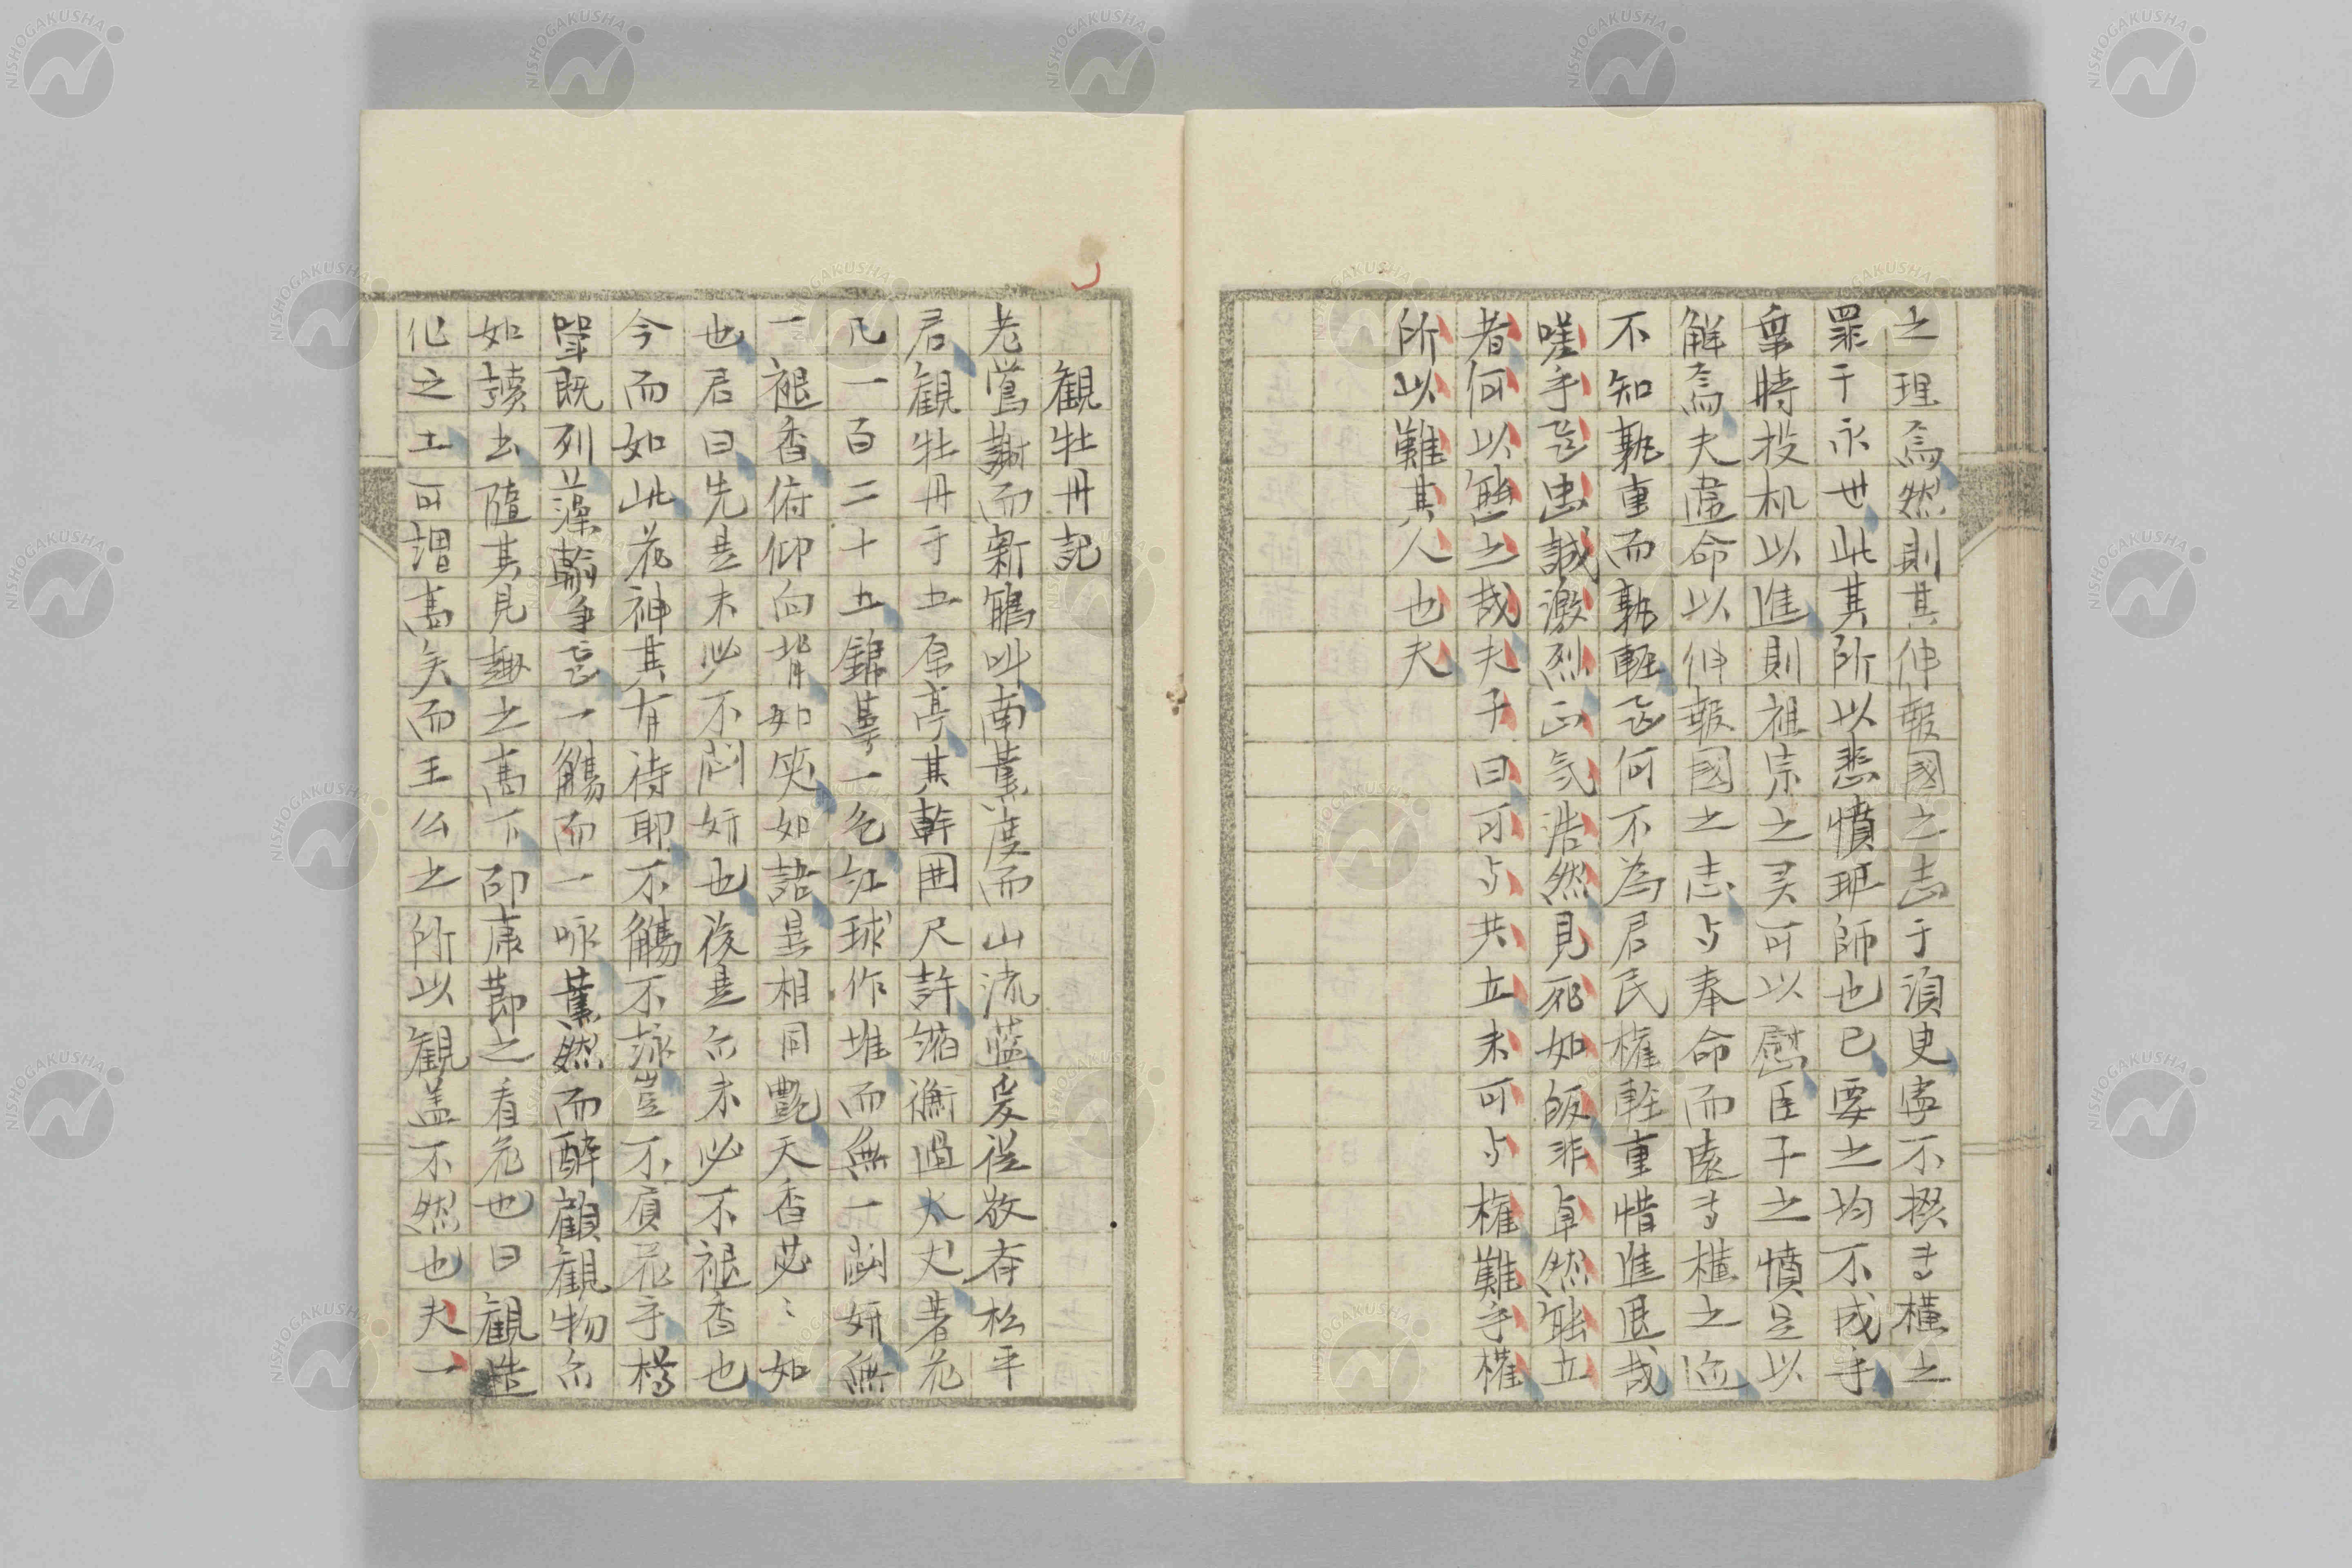 之理焉然則其伸報國之志于湏臾寧不揆专權之
罪于永世此其所以悲憤班師也已要之均不成乎
臯時投机以進則祖宗之灵可以慰臣子之憤足以
解焉夫違命以伸報國之志与奉命而遠专權之近
不知孰重而孰軽乎何不為君民權軽重惜進退哉
嗟乎忠誠激烈正気浩然見死如皈非卓然能立
者何以能之哉夫子曰可与共立未可与權難乎權
所以難其人也夫
観牡丹記
老鶯謝而新鵑叫南薫度而山流藍爰從敬斎松平
君観牡丹于五原亭其幹囲尺許縮衡過大丈著花
凡一百二十五錦蕚一色紅球作堆而無一凋妍無
一褪香俯仰向背如笑如語異相同艶天香苾〻如
也君曰先是未必不凋妍也後是亦未必不褪香也
今而如此花神其有待耶不觴不詠豈不負花乎樽
罍既列藻翰争一觴而一咏薫然而醉顧観物亦
如讀去隨其見趣之高下卲康節之看花也曰観造
化之土可謂高矣而王公之所以観盖不然也夫一